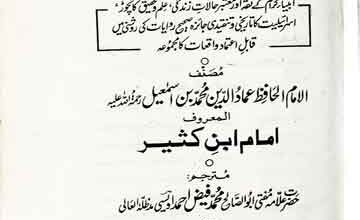 انبیاء کرام کے ثقہ اور معتبر حالاتِ زندگی، علم و تحقیق کا نچوڑ،
اسرائیلیات کا تاریخی و تنقیدی جائزہ صحیح روایات کی روشنی میں
قابلِ اعتماد واقعات کا مجموعہ
مصنف
الامام الحافظ عماد الدین محمد بن اسمٰعیل رحمۃ اللہ علیہ
المعروف
امام ابنِ کثیر
مترجم:
حضرت علامہ مفتی ابو الصالح محمد فیض احمد اویسی مدظلہ العالی